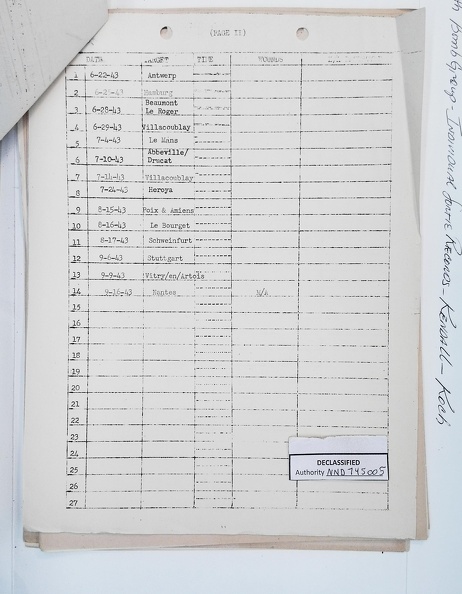 (PAGE II)
DATE TARGET TIME WOUNDS
1 6-22-43 Antwerp
2 6-25-43 Hamburg
3 6-28-43 Beaumont
Le Roger
4 6-29-43 Villacoublay
5 7-4-43 Le Mans
6 7-10-43 Abbeville/
Drucat
7 7-14-43 Villacoublay
8 7-24-43 Heroya
9 8-15-43 Poix & Amiens
10 8-16-43 Le Bourget
11 8-17-43 Schweinfurt
12 9-6-43 Stuttgart
13 9-9-43 Vitry/en/Artois
14 9-16-43 Nantes N/A
15
16
17
18
19
20
21
22
23
24
25
26
27
DECLASSIFIED
Authority NND 745005
Bomb Group - Individual Records Kendall - Koch